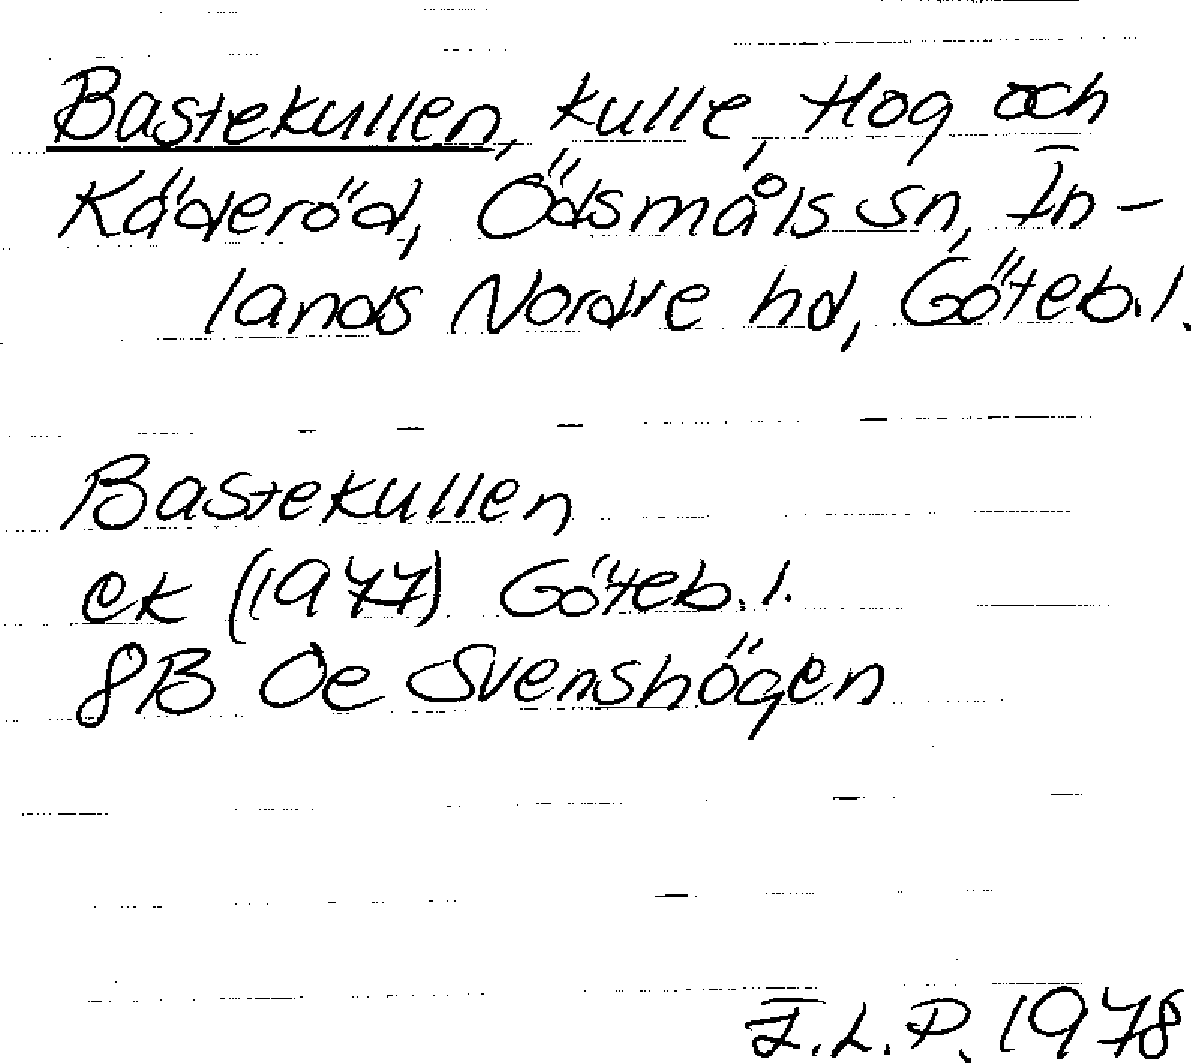 Bastekullen, kulle, Hog och
Käderöd, Ödsmåls sn, In-
lands Nordre hd, Göteb.l.
Bastekullen
ek (1977) Göteb.l.
8B 0e Svenshögen
I.L.P. 1978